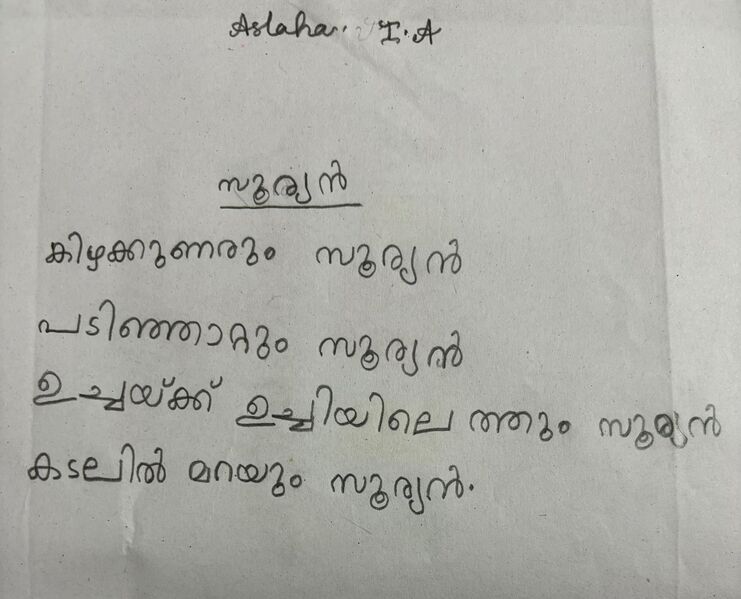 Aslaha. I.A
സൂര്യൻ
കിഴക്കുണരും സൂര്യൻ
പടിഞ്ഞാറ്റും സൂര്യൻ
ഉച്ചയ്ക്ക് ഉച്ചിയിലെ ത്തും സൂര്യൻ
കടലിൽ മറയും സൂര്യൻ.